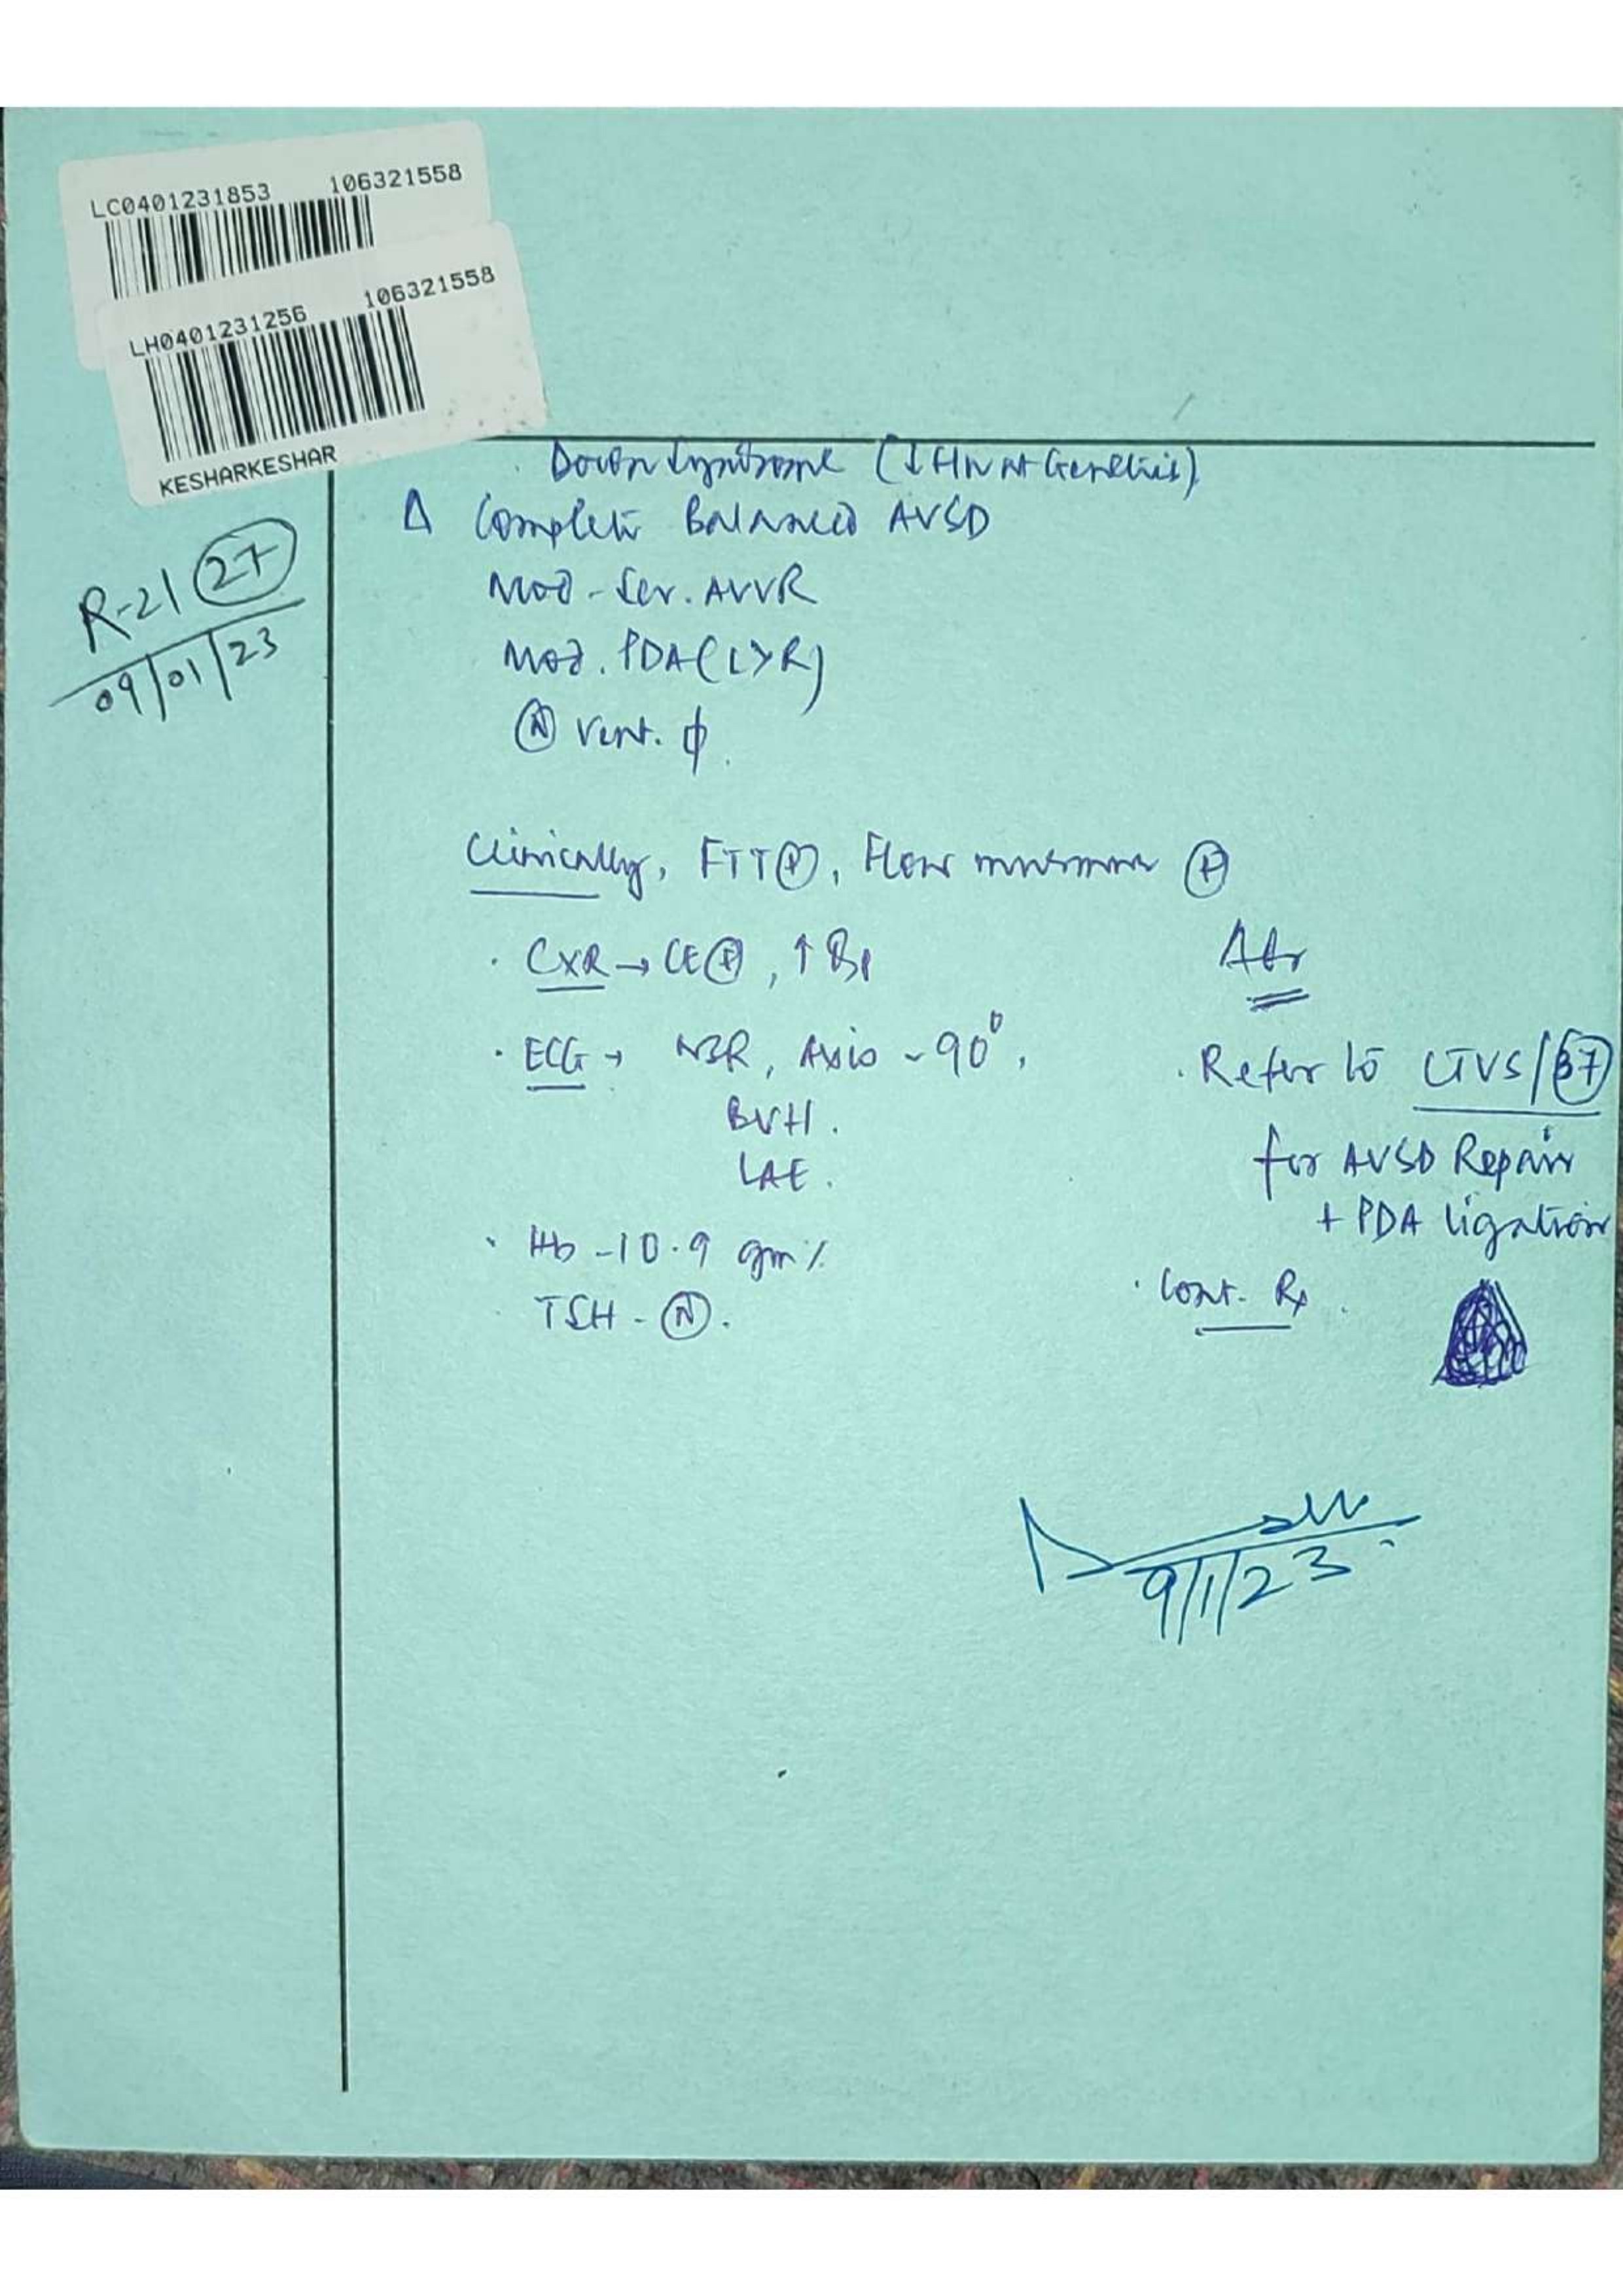 LC0401231853 106321558
LH0401231256 106321558
KESHARKESHAR
R-21 27
09/01/23
Down Syndrome (
Δ Complete Balanced AVSD
Mod - Sev. AVVR
Mod. PDA (L>R)
Ⓝ Vent. ϕ.
Clinically, FTT⊕, Flow murmur ⊕
· CXR → CE⊕, ↑ B
· ECG → NSR, Axis - 90°,
BVH.
LAE.
· Hb - 10.9 gm%
· TSH - Ⓝ.
Adv
· Refer to CTVS/
for AVSD Repair
+ PDA ligation
· Cont. Rx.
9/1/23